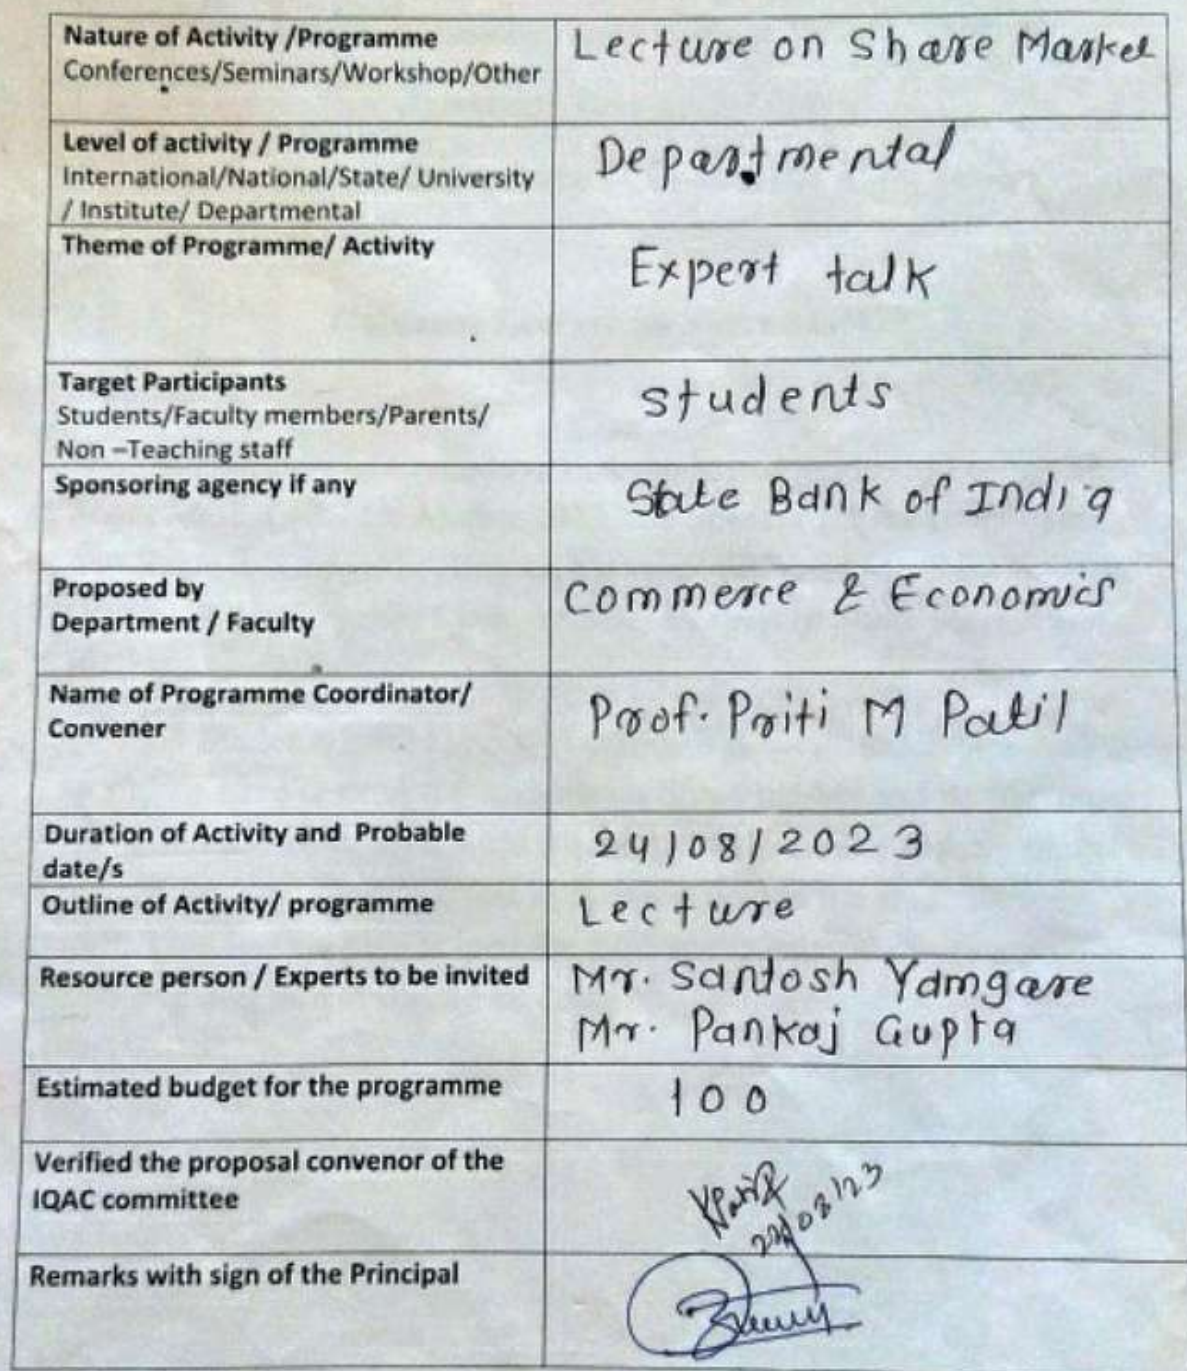 Nature of Activity /Programme
Conferences/Seminars/Workshop/Other
Lecture on Share Market
Level of activity / Programme
International/National/State/ University
/ Institute/ Departmental
Departmental
Theme of Programme/ Activity
Expert talk
Target Participants
Students/Faculty members/Parents/
Non –Teaching staff
students
Sponsoring agency if any
State Bank of India
Proposed by
Department / Faculty
Commerce & Economics
Name of Programme Coordinator/
Convener
Prof. Priti M Patil
Duration of Activity and Probable
date/s
24/08/2023
Outline of Activity/ programme
Lecture
Resource person / Experts to be invited
Mr. Santosh Yamgare
Mr. Pankaj Gupta
Estimated budget for the programme
100
Verified the proposal convenor of the
IQAC committee
Remarks with sign of the Principal